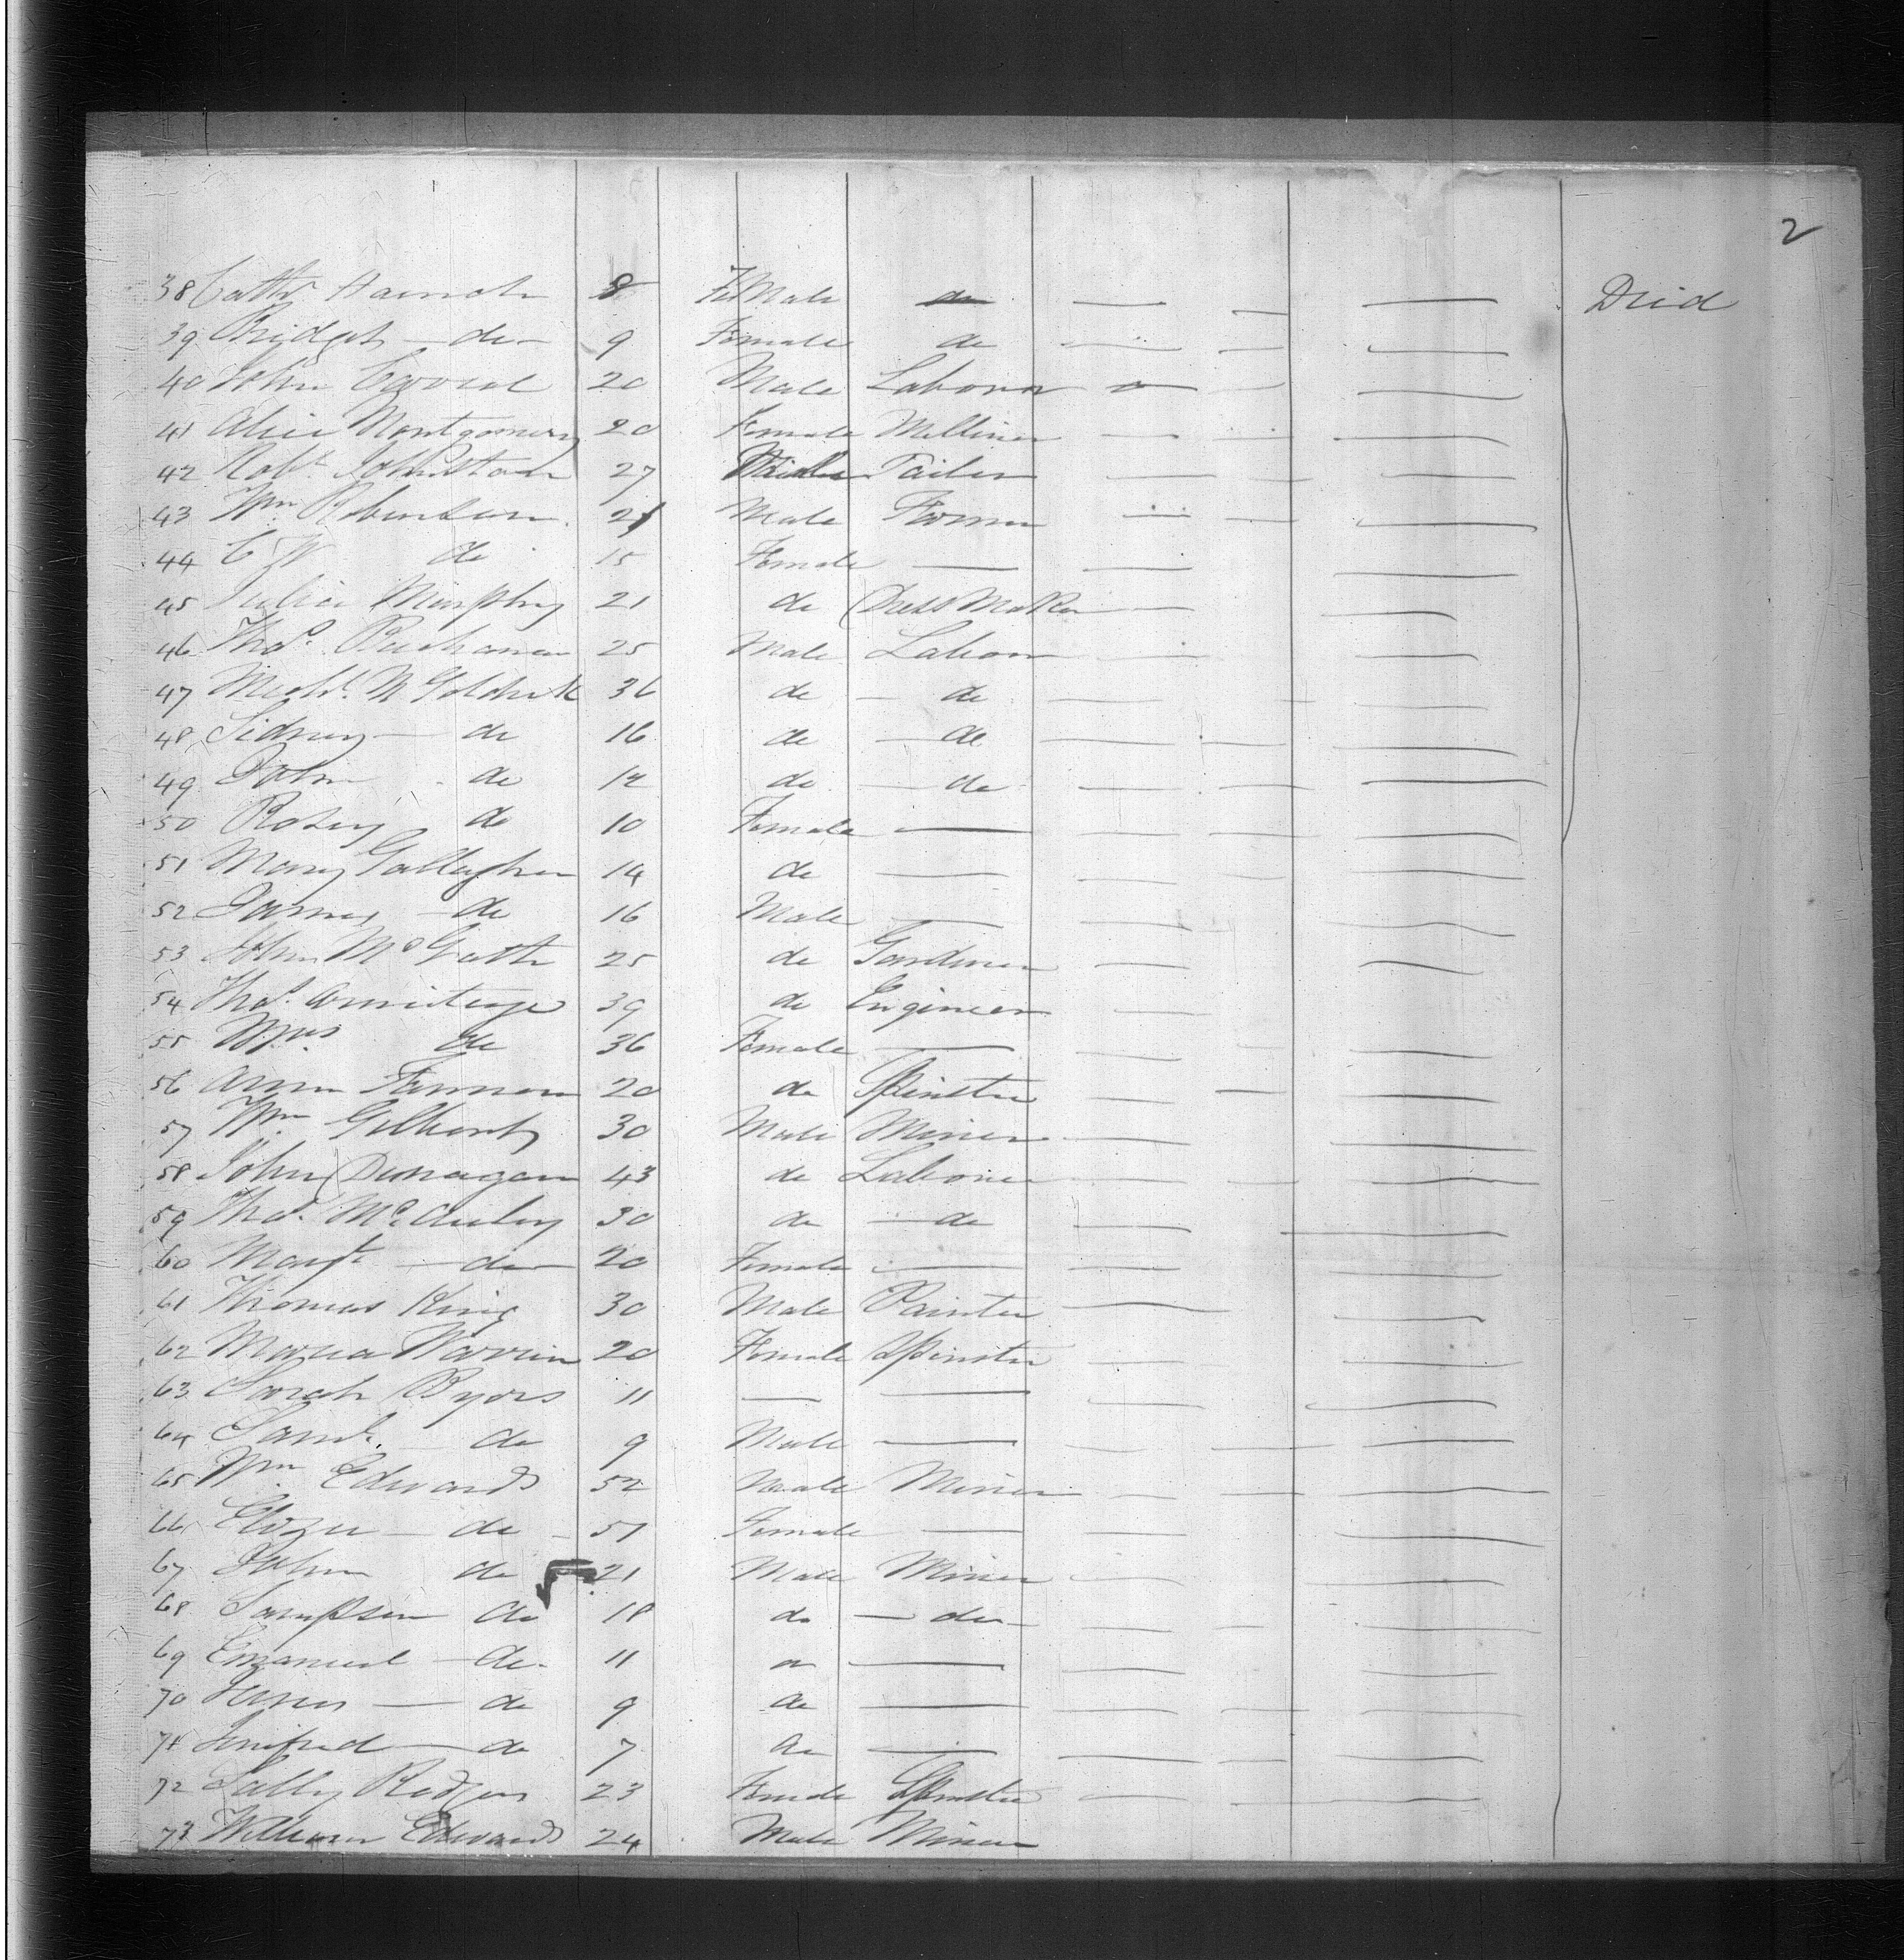 2
38 Cathe Hannah 8 FeMale do Died
39 Bridget do 9 Female do
40 John Carroll 20 Male Laborer
41 Alice Montgomery 20 Female Milliner
42 Robt Johnston 27 Tailer
43 Wm Robinson 21 Male Farmer
44 C W do 15 Female
45 Julia Murphy 21 do Dress Maker
46 Thos Buchanan 25 Male Labour
47 Michl McGoldrick 36 do do
48 Sidney do 16 do do
49 John do 12 do do
50 Rosey do 10 Female
51 Mary Gallagher 14 do
52 James do 16 Male
53 John McGrath 25 do Gardner
54 Thos Armitage 39 do Engineer
55 Mrs do 36 Female
56 Ann Farman 20 do Spinster
57 Wm Gilbert 30 Male Miner
58 John Dunagan 43 do Laborer
59 Thos McAuley 30 do do
60 Margt do 20 Female
61 Thomas King 30 Male Painter
62 Maria Warrin 20 Female Spinster
63 Sarah Byors 11
64 Saml do 9 Male
65 Wm Edwards 52 Male Miner
66 Eliza do 51 Female
67 John do 21 Male Miner
68 Sampson do 18 do do
69 Emanuel do 11
70 James do 9 do
71 do 7 do
72 Sally Rodgers 23 Female Spinster
73 William Edwards 24 Male Miner